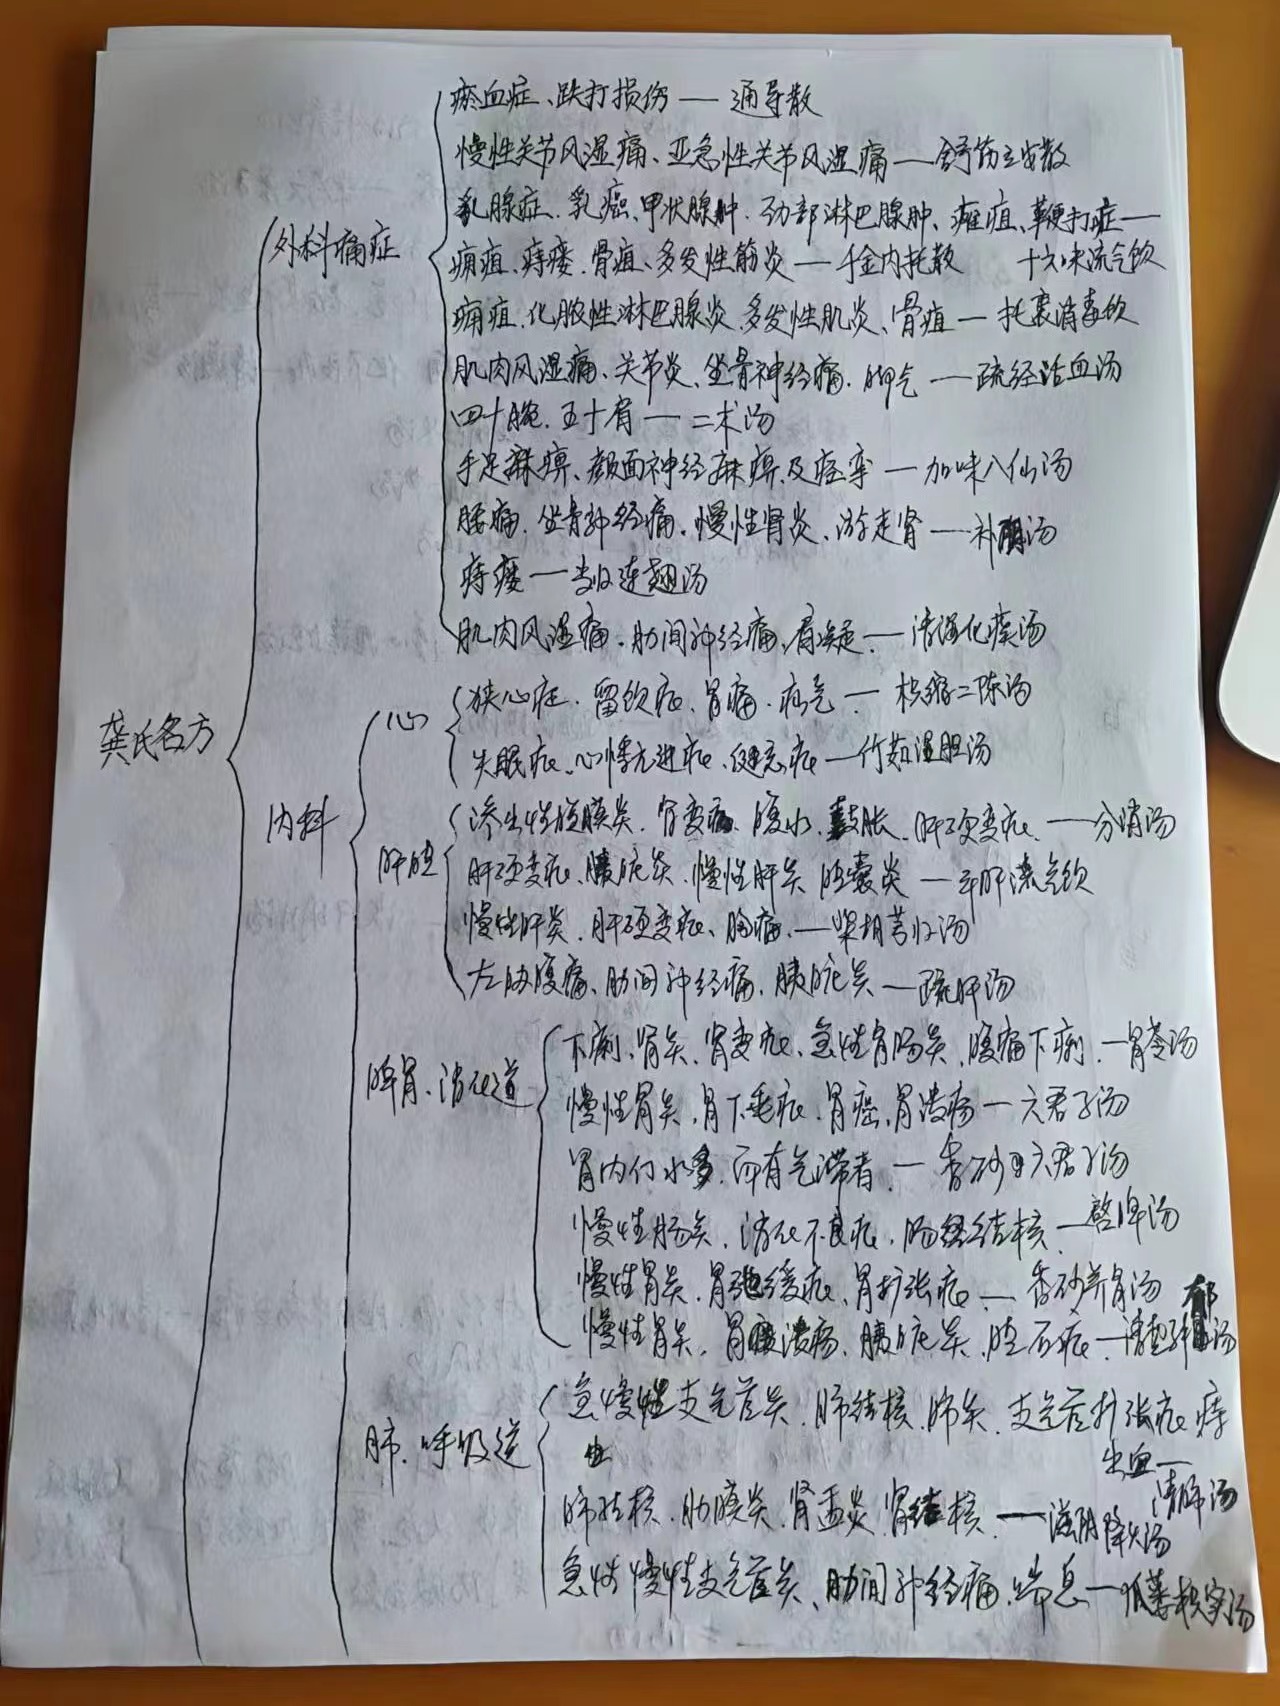 龚氏名方
外科痛症
瘀血症、跌打损伤——通导散
慢性关节风湿痛、亚急性关节风湿痛——舒筋立安散
乳腺症、乳癌、甲状腺肿、颈部淋巴腺肿、瘫疽、鞭打症——
十六味流气饮
痈疽、痔瘘、骨疽、多发性筋炎——千金内托散
痈疽、化脓性淋巴腺炎、多发性肌炎、骨疽——托裏消毒饮
肌肉风湿痛、关节炎、坐骨神经痛、脚气——疏经活血汤
四十腕、五十肩——二术汤
手足麻痹、颜面神经麻痹及痉挛——加味八仙汤
腰痛、坐骨神经痛、慢性肾炎、游走肾——补阴汤
痔瘘——当归连翘汤
肌肉风湿痛、肋间神经痛、肩凝——清湿化痰汤
内科
心
狭心症、留饮症、胃痛、疝气——枳缩二陈汤
失眠症、心悸亢进症、健忘症——竹茹温胆汤
肝胆
渗出性腹膜炎、肾变症、腹水、鼓胀、肝硬变症——分消汤
肝硬变症、胰脏炎、慢性肝炎、胆囊炎——平肝流气饮
慢性肝炎、肝硬变症、胸痛——柴胡芎归汤
左胁腹痛、肋间神经痛、胰脏炎——疏肝汤
脾胃、消化道
下痢、肾炎、肾变症、急性胃肠炎、腹痛下痢——胃苓汤
慢性胃炎、胃下垂症、胃癌、胃溃疡——六君子汤
胃内停水多、而有气滞者——香砂六君子汤
慢性肠炎、消化不良症、肠结核——启脾汤
慢性胃炎、胃弛缓症、胃扩张症——香砂养胃汤
慢性胃炎、胃溃疡、胰脏炎、胆石症——清热解郁汤
肺、呼吸道
急慢性支气管炎、肺结核、肺炎、支气管扩张症、痔
出血——
清肺汤
肺结核、肋膜炎、肾盂炎、肾结核——滋阴降火汤
急性慢性支气管炎、肋间神经痛、喘息——瓜蒌枳实汤